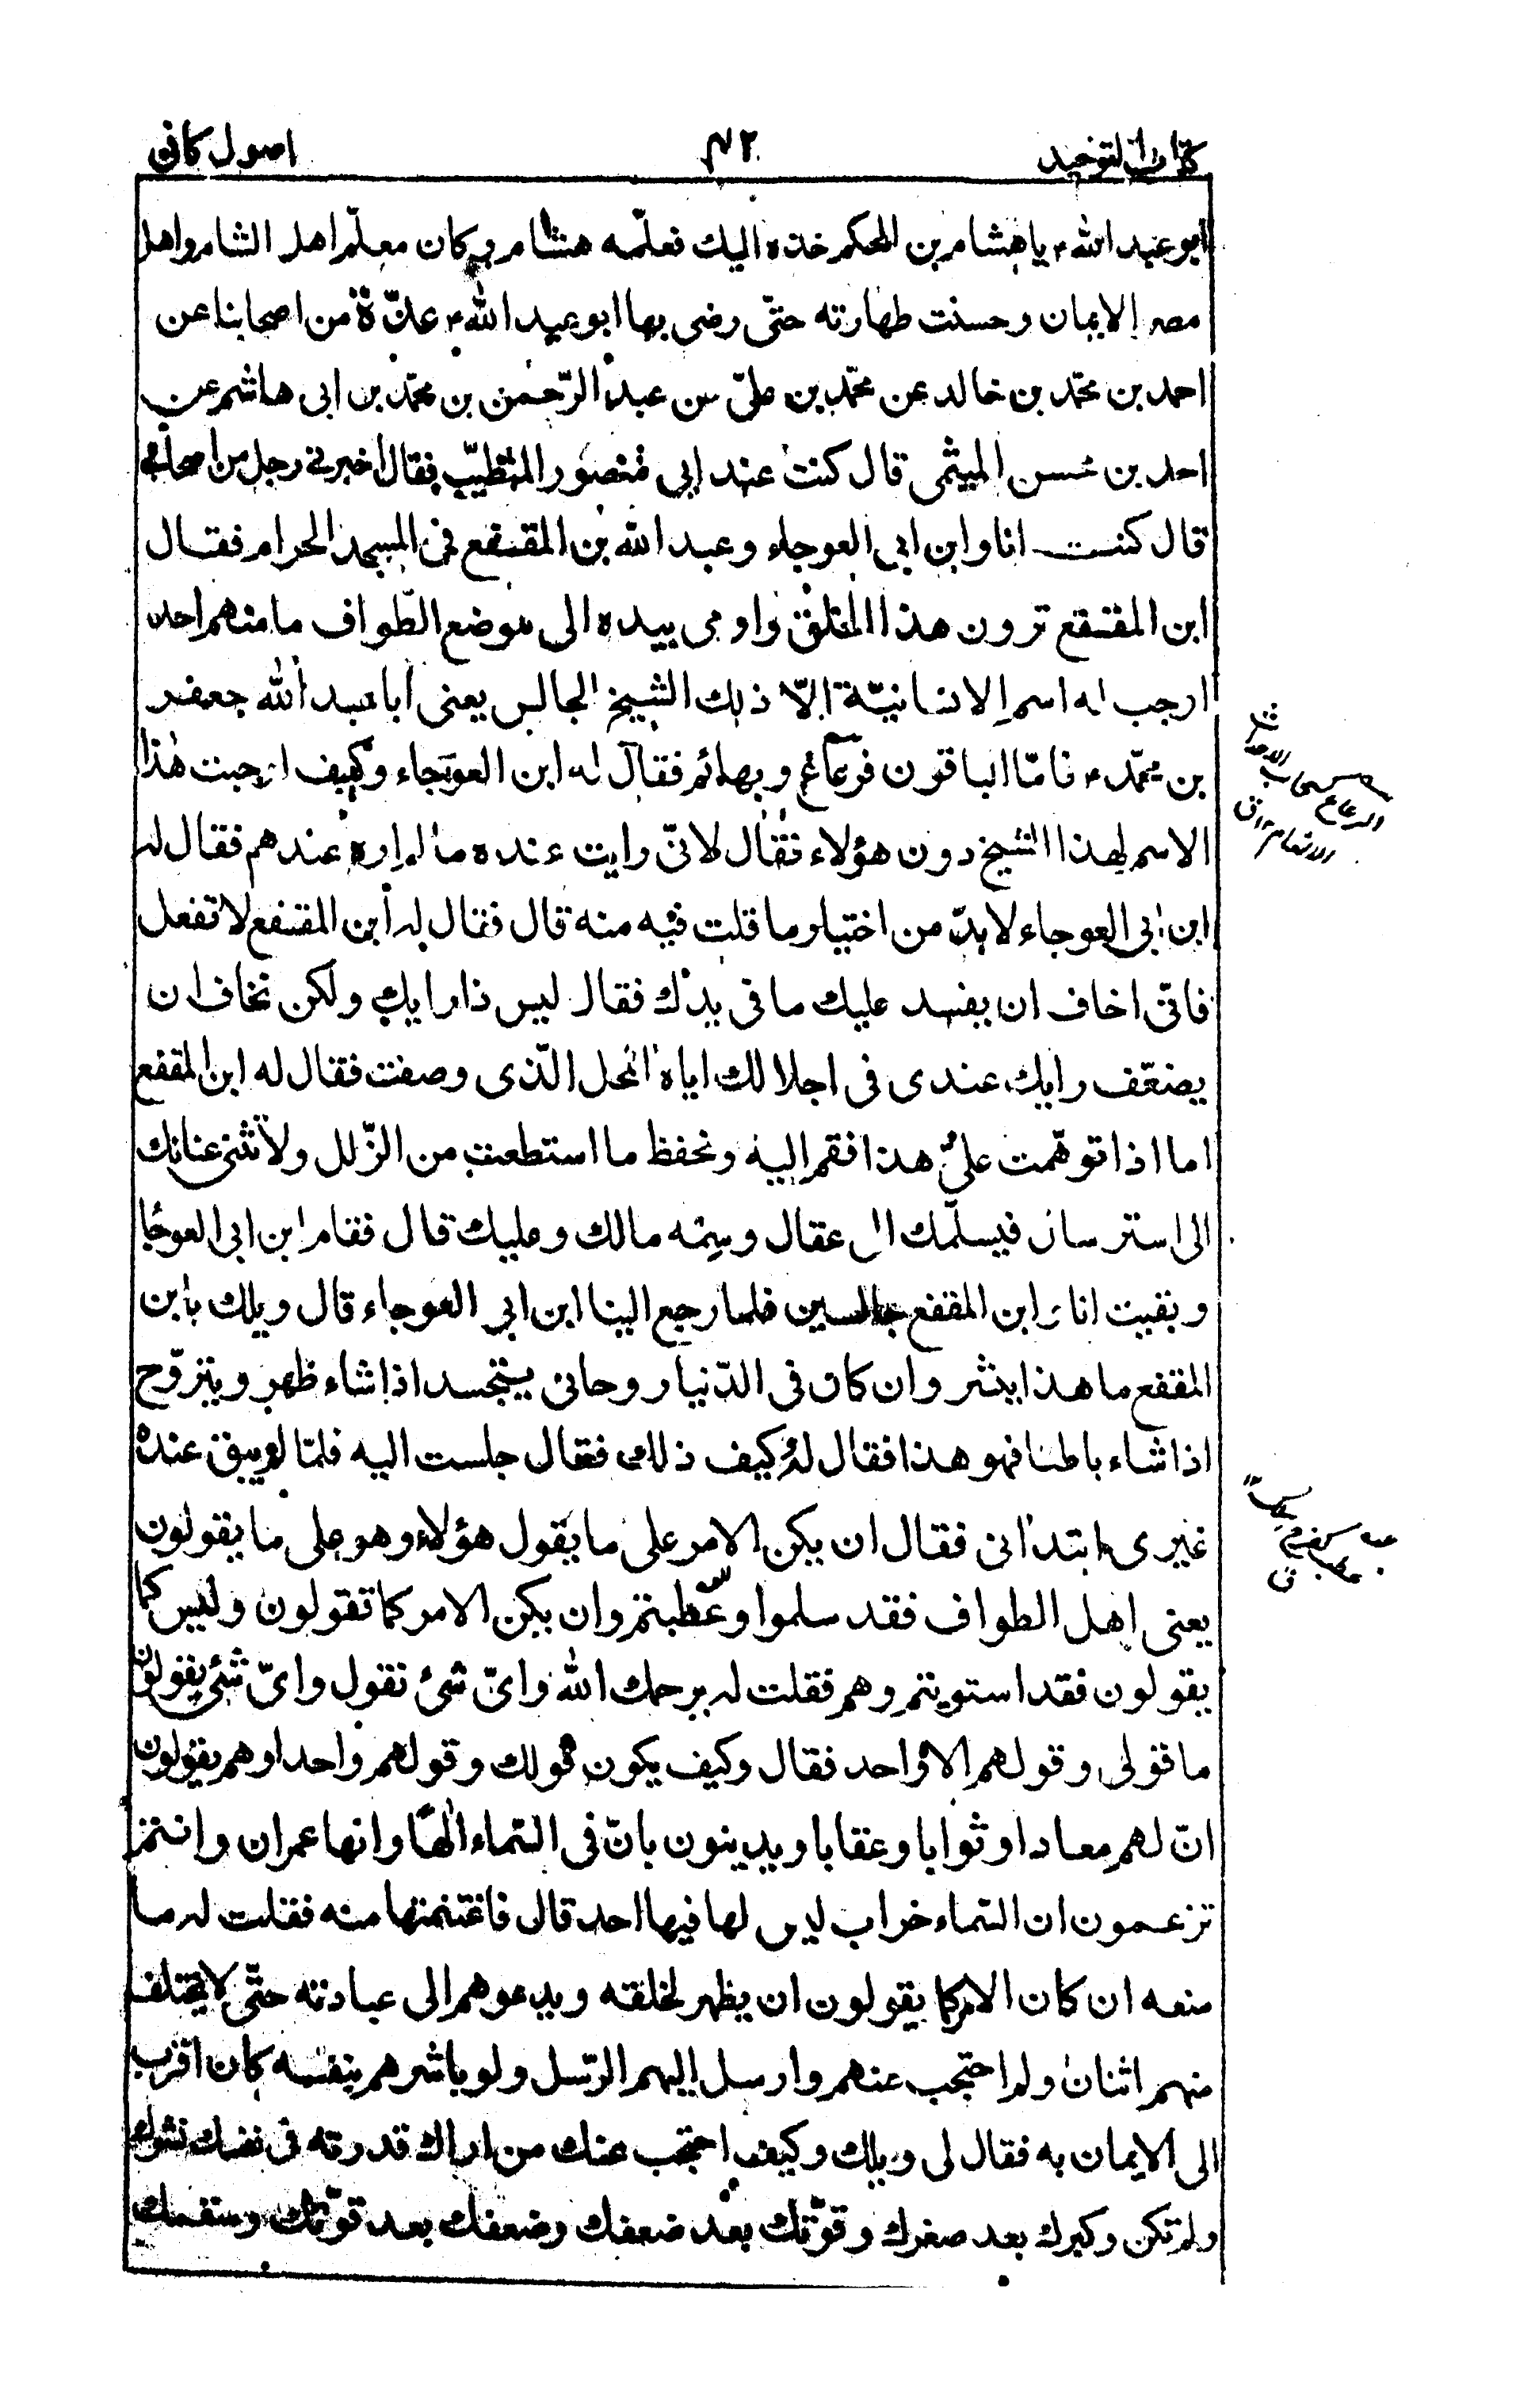 كتاب التوحيد
٤٢
اصول كافى
ابو عبد الله ع يا هشام بن الحكم خذه اليك فعلّمه هشام و كان معلّم اهل الشام واهل
مصر الايمان وحسنت طهارته حتّى رضى بها ابو عبد الله ع عدّة من اصحابنا عن
احمد بن محمّد بن خالد عن محمّد بن علىّ عن عبد الرّحمن بن محمّد بن ابى هاشم عن
احمد بن محسن الميثمى قال كنت عند ابى منصور المتطبّب فقال اخبرنى رجل من اصحابى
قال كنت انا وابن ابى العوجاء وعبد الله بن المقفع فى المسجد الحرام فقال
ابن المقفع ترون هذا الخلق واومى بيده الى موضع الطّواف ما منهم احد
اوجب له اسم الانسانيّة الّا ذلك الشيخ الجالس يعنى ابا عبد الله جعفر
بن محمّد ع فامّا الباقون فرعاع وبهائم فقال له ابن العوجاء وكيف اوجبت هذا
الاسم لهذا الشيخ دون هؤلاء فقال لانّى رايت عنده ما لم اره عندهم فقال له
ابن ابى العوجاء لا بدّ من اختبار ما قلت فيه منه قال فقال له ابن المقفع لا تفعل
فانّى اخاف ان يفسد عليك ما فى يدك فقال ليس ذا رايك ولكن تخاف ان
يضعف رايك عندى فى اجلالك اياه المحل الّذى وصفت فقال له ابن المقفع
اما اذا توهّمت علىّ هذا فقم اليه وتحفظ ما استطعت من الزّلل ولا تثنى عنانك
الى استرسال فيسلّمك الى عقال وسمه مالك وعليك قال فقام ابن ابى العوجا
وبقيت انا وابن المقفع جالسين فلما رجع الينا ابن ابى العوجاء قال ويلك يابن
المقفع ما هذا ببشر وان كان فى الدّنيا روحانى يتجسد اذا شاء ظاهر ويتروّح
اذا شاء باطنا فهو هذا فقال له وكيف ذلك فقال جلست اليه فلمّا لم يبق عنده
غيرى ابتدانى فقال ان يكن الامر على ما يقول هؤلاء وهو على ما يقولون
يعنى اهل الطواف فقد سلموا وعطبتم وان يكن الامر كما تقولون وليس كما
يقولون فقد استويتم وهم فقلت له يرحمك الله واىّ شئ نقول واىّ شئ يقولون
ما قولى وقولهم الا واحد فقال وكيف يكون قولك وقولهم واحدا وهم يقولون
انّ لهم معادا وثوابا وعقابا ويدينون بانّ فى السّماء الٰهًا وانها عمران وانتم
تزعمون ان السّماء خراب ليس لها فيها احد قال فاغتنمتها منه فقلت له ما
منعه ان كان الامر كما يقولون ان يظهر لخلقه ويدعوهم الى عبادته حتّى لا يختلف
منهم اثنان ولم احتجب عنهم وارسل اليهم الرّسل ولو باشرهم بنفسه كان اقرب
الى الايمان به فقال لى ويلك وكيف احتجب عنك من اراك قدرته فى نفسك نشوك
ولم تكن وكبرك بعد صغرك وقوّتك بعد ضعفك وضعفك بعد قوّتك وسقمك